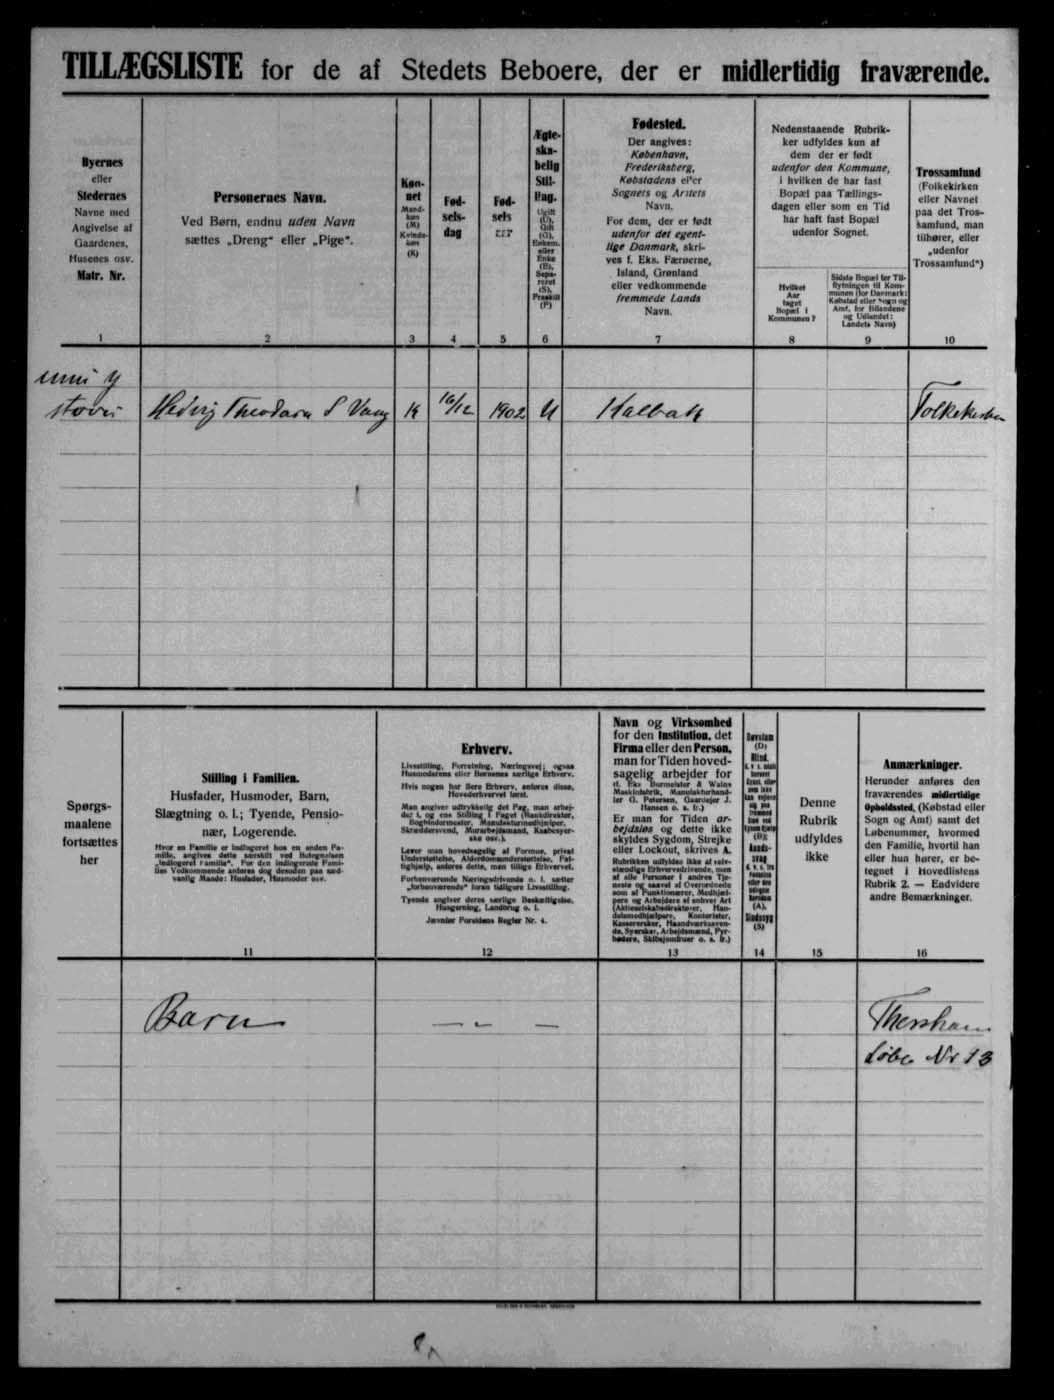 TILLÆGSLISTE for de af Stedets Beboere, der er midlertidig fraværende.
Byernes
eller
Stedernes
Navne med
Angivelse af
Gaardenes,
Husenes osv.
Matr. Nr.
1
Personernes Navn.
Ved Børn, endnu uden Navn
sættes „Dreng“ eller „Pige“.
2
Køn-
net
Mand-
køn
(M)
Kvinde-
køn
(K)
3
Fød-
sels-
dag
4
Fød-
sels
5
Ægte-
ska-
belig
Stil-
ling.
Ugift
(U),
Gift
(G),
Enkem.
eller
Enke
(E),
Sepa-
reret
(S),
Fraskilt
(F)
6
Fødested.
Der angives:
København,
Frederiksberg,
Købstadens eller
Sognets og Amtets
Navn.
For dem, der er født
udenfor det egent-
lige Danmark, skri-
ves f. Eks. Færøerne,
Island, Grønland
eller vedkommende
fremmede Lands
Navn.
7
Nedenstaaende Rubrik-
ker udfyldes kun af
dem der er født
udenfor den Kommune,
i hvilken de har fast
Bopæl paa Tællings-
dagen eller som en Tid
har haft fast Bopæl
udenfor Sognet.
Hvilket
Aar
taget
Bopæl i
Kommunen?
8
Sidste Bopæl før Til-
flytningen til Kom-
munen (for Danmark:
Købstad eller Sogn og
Amt, for Bilandene
og Udlandet:
Landets Navn)
9
Trossamfund
(Folkekirken
eller Navnet
paa det Tros-
samfund, man
tilhører, eller
„udenfor
Trossamfund“)
10
stovu Hedvig Theodora S Vang K 16/12 1902 U Kalbak Folkekirken
Spørgs-
maalene
fortsættes
her
Stilling i Familien.
Husfader, Husmoder, Barn,
Slægtning o. l.; Tyende, Pensio-
nær, Logerende.
Hvor en Familie er indlogeret hos en anden Fa-
milie, angives dette særskilt ved Betegnelsen
„Indlogeret Familie“. For den indlogerede Fami-
lies Vedkommende anføres dog desuden paa sæd-
vanlig Maade: Husfader, Husmoder osv.
11
Erhverv.
Livsstilling, Forretning, Næringsvej; ogsaa
Husmoderens eller Børnenes særlige Erhverv.
Hvis nogen har flere Erhverv, anføres disse,
Hovederhvervet først.
Man angiver udtrykkelig det Fag, man arbej-
der i, og ens Stilling i Faget (Bankdirektør,
Bogbindermester, Manufakturmedhjælper,
Skræddersvend, Murarbejdsmand, Kaabesyer-
ske osv.).
Lever man hovedsagelig af Formue, privat
Understøttelse, Alderdomsunderstøttelse, Fat-
tighjælp, anføres dette, men tillige Erhvervet.
Forhenværende Næringsdrivende o. l. sætter
„forhenværende“ foran tidligere Livsstilling.
Tyende angiver deres særlige Beskæftigelse,
Husgerning, Landbrug o. l.
Jævnfør Forsidens Regler Nr. 4.
12
Navn og Virksomhed
for den Institution, det
Firma eller den Person,
man for Tiden hoved-
sagelig arbejder for
(f. Eks Burmeister & Wains
Maskinfabrik, Manufakturhand-
ler G. Petersen, Gaardejer J.
Hansen o. s. fr.)
Er man for Tiden ar-
bejdsløs og dette ikke
skyldes Sygdom, Strejke
eller Lockout, skrives A.
Rubrikken udfyldes ikke af selv-
stændige Erhvervsdrivende, men
af alle Personer i andres Tje-
neste og saavel af Overordnede
som af Funktionærer, Medhjæl-
pere og Arbejdere af enhver Art
(Aktieselskabsdirektører, Han-
delsmedhjælpere, Kontorister,
Kassererske, Haandværkssven-
de, Syersker, Arbejdsmænd, Fyr-
bødere, Skibsjomfruer o. s. fr.)
13
Døvstum
(D)
Blind,
(B);
Aands-
svag
(A),
Sindssyg
(S)
14
Denne
Rubrik
udfyldes
ikke
15
Anmærkninger.
Herunder anføres den
fraværendes midlertidige
Opholdssted, (Købstad eller
Sogn og Amt) samt det
Løbenummer, hvormed
den Familie, hvortil han
eller hun hører, er be-
tegnet i Hovedlistens
Rubrik 2. — Endvidere
andre Bemærkninger.
16
Barn — „ —
Løbe Nr 13